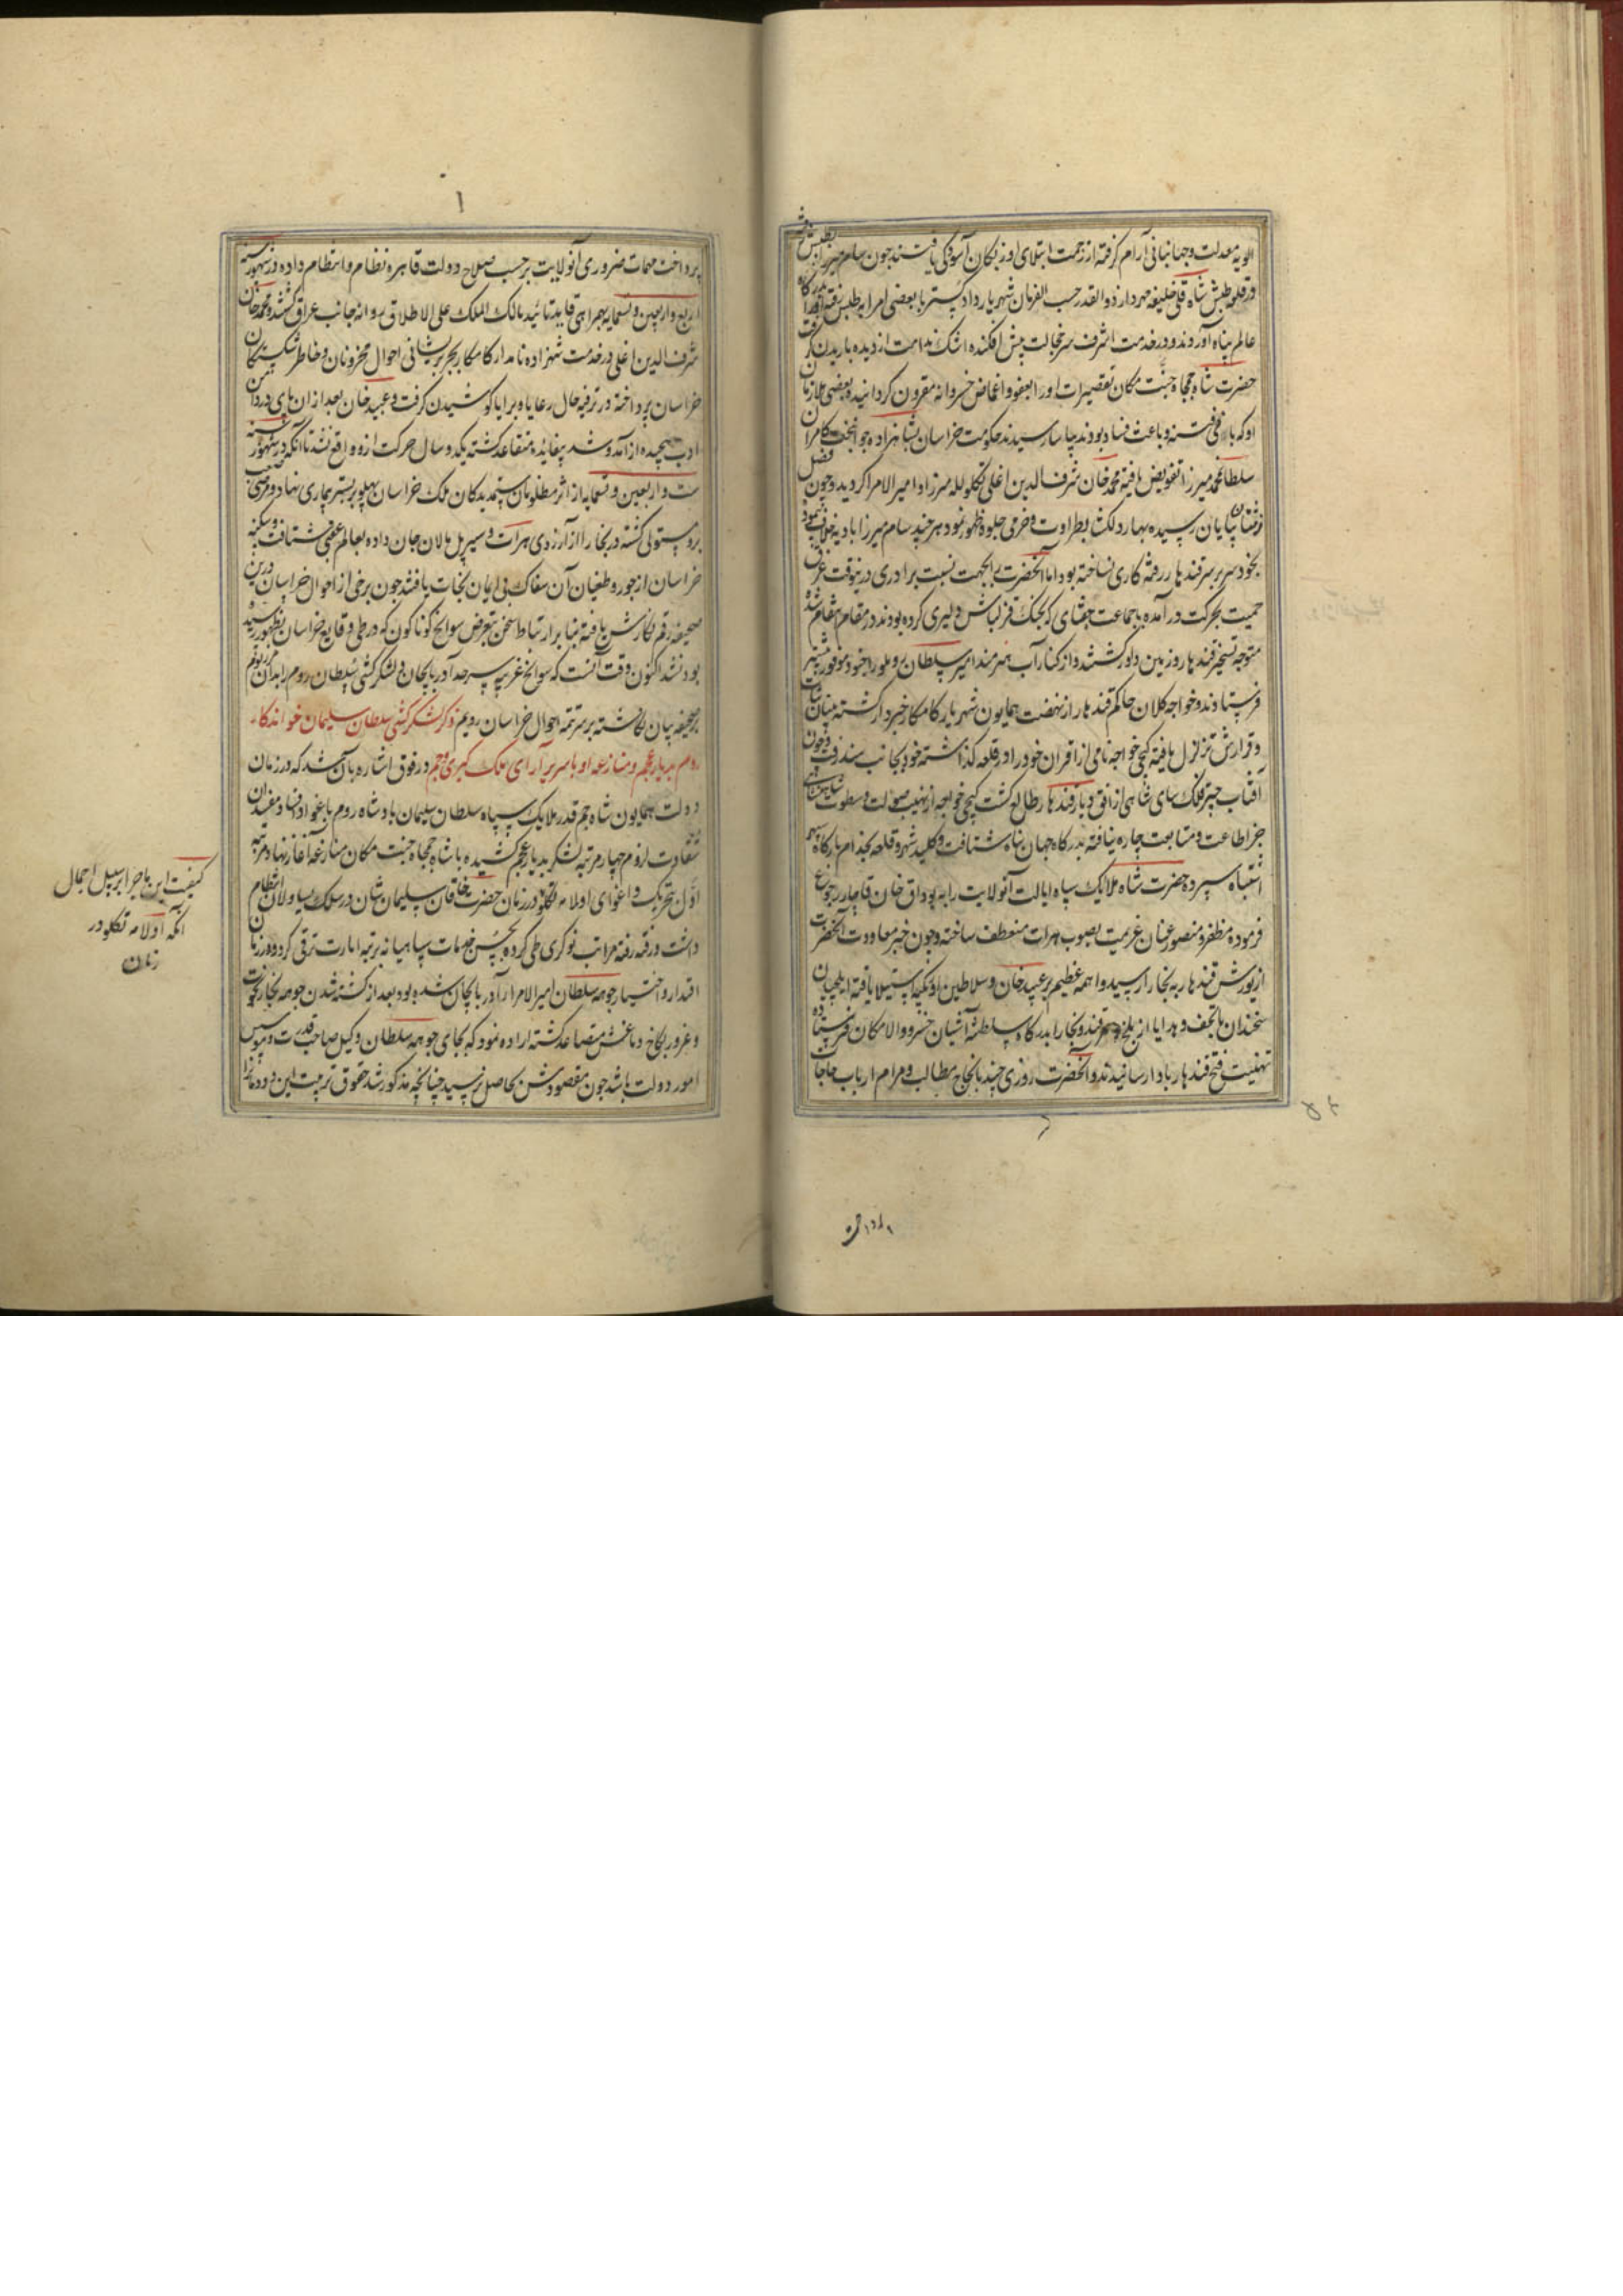 الویه معدلت وجهانبانی آرام گرفته از زحمت ابتلای اوزبکان آسودگی یافتند چون سام میرزا بطبس
در قلعه طبس شاه قلی خلیفه مهردار ذوالقدر حسب الفرمان شهریار دادگستر با بعضی امرا بطبس رفته اورا بدرگاه
عالم پناه آوردند و در خدمت اشرف سر خجالت پیش افکنده اشک ندامت از دیده باریدن گرفت
حضرت شاه جمجاه جنت مکان تقصیرات اورا بعفو و اغماض خسروانه مقرون گردانیده بعضی ملازمان
او که فتنه و باعث فساد بودند بیاسا رسیدند حکومت خراسان بشاهزاده جوانبخت کامران
سلطان محمد میرزا تفویض یافته محمد خان شرف الدین اغلی تکلو لله میرزا و امیرالامرا گردید و چون فصل
زمستان بپایان رسیده بهار دلکش بطراوت و خرمی جلوه ظهور نمود هر چند سام میرزا
بخود سر بر سر قندهار رفته کاری نساخته بود اما آنحضرت را بجهت نسبت برادری درینوقت عرق
حمیت بحرکت در آمده با جماعت جغتای که بجنک قزلباش دلیری کرده بودند در مقام انتقام شده
متوجه تسخیر قندهار و زمین داور گشتند و از کنار آب هیرمند امیر سلطان روملو را بجنود موفور پیشتر
فرستادند و خواجه کلان حاکم قندهار از نهضت همایون شهریار کامکار خبردار گشته بنیان ثبات
و قرارش تزلزل یافته کپچی خواجه نامی از اقران خود را در قلعه گذاشته خود بجانب سند رفت و چون
آفتاب چتر فلک سای شاهی از افق دیار قندهار طالع گشت کپچی خواجه از نهیب صولت و سطوت شاهی
جز اطاعت و متابعت چاره نیافته بدرگاه جهان پناه شتافت و کلید شهر و قلعه بخدام بارگاه سپهر
اشتباه سپرده حضرت شاه ملایک سپاه ایالت آنولایت را به بوداق خان قاجار رجوع
فرموده مظفر و منصور عنان عزیمت بصوب هرات منعطف ساخته و چون خبر معاودت آنحضرت
از یورش قندهار به بخارا رسید واهمه عظیم بر عبید خان و سلاطین اوزبکیه استیلا یافته ایلچیان
سخندان با تحف و هدایا از بلخ و سمرقند و بخارا بدرگاه سلطنة آشیان خسرو والا مکان فرستاده
تهنیت فتح قندهار بادا رسانیدند و آنحضرت روزی چند بانجاح مطالب و مرام ارباب حاجات
پرداخت مهمات ضروری آنولایت بر حسب صلاح دولت قاهره نظام و انتظام داده در شهور سنه
اربع و اربعین و تسعمایه بهمراهی قاید تائید مالک الملک علی الاطلاق روانه جانب عراق شدند و محمد خان
شرف الدین اغلی در خدمت شهزاده نامدار کامکار بجبر پریشانی احوال محزونان و خاطر شکستگان
خراسان پرداخته در ترفیه حال رعایا و برایا کوشیدن گرفت و عبید خان بعد از آن پای در دامن
ادب پیچیده از آمد و شد بیفایده متقاعد گشته یکدو سال حرکت ازو واقع نشد تا آنکه در شهور سنه
ست و اربعین و تسعمایه از اثر مظلومان ستمدیدگان ملک خراسان پهلو بر بستر بیماری نهاد و مرض صعب
برو مستولی گشته در بخارا از آرزوی هرات و سیر پل مالان جان داده بعالم عقبی شتافت و سکنه
خراسان از جور و طغیان آن سفاک بی ایمان نجات یافتند چون برخی از احوال خراسان درین
صحیفه رقم نگارش یافته بنا بر ارتباط سخن متعرض سوانح گوناگون که در طی وقایع خراسان بظهور رسیده
بود نشد اکنون وقت آنست که سوانح غریبه سرحد آذربایجان و لشکر کشی سلطان روم را بدان مرز و بوم
بر صحیفه بیان نگاشته بر سر تتمه احوال خراسان رویم ذکر لشکر کشی سلطان سلیمان خواندکار
روم بدیار عجم و منازعه او با سریر آرای ملک کسری و جم در فوق اشاره بآن شد که در زمان
دولت همایون شاه جم قدر ملایک سپاه سلطان سلیمان پادشاه روم باغوا و افساد مفسدان
شقاوت لزوم چهار مرتبه لشکر بدیار عجم کشیده با شاه جمجاه جنت مکان منازعه آغاز نهاد مرتبه
اول بتحریک و اغوای اولامه تکلو در زمان حضرت خاقان سلیمان شان در سلک یساولان انتظام
داشت و رفته رفته مراتب نوکری طی کرده بحسن خدمات سپاهیانه برتبه امارت ترقی کرده در زمان
اقتدار و اختیار جوهه سلطان امیر الامرا آذربایجان شده بود بعد از کشته شدن جوهه بخار نخوت
و غرور بکاخ دماغش متصاعد گشته اراده نمود که بجای جوهه سلطان وکیل صاحب قدرت و
امور دولت باشد چون مقصودش بحاصل نرسید چنانچه مذکور شد حقوق تربیت این دودمان را
کیفیت این ماجرا بر سبیل اجمال
آنکه اولامه تکلو در
زمان